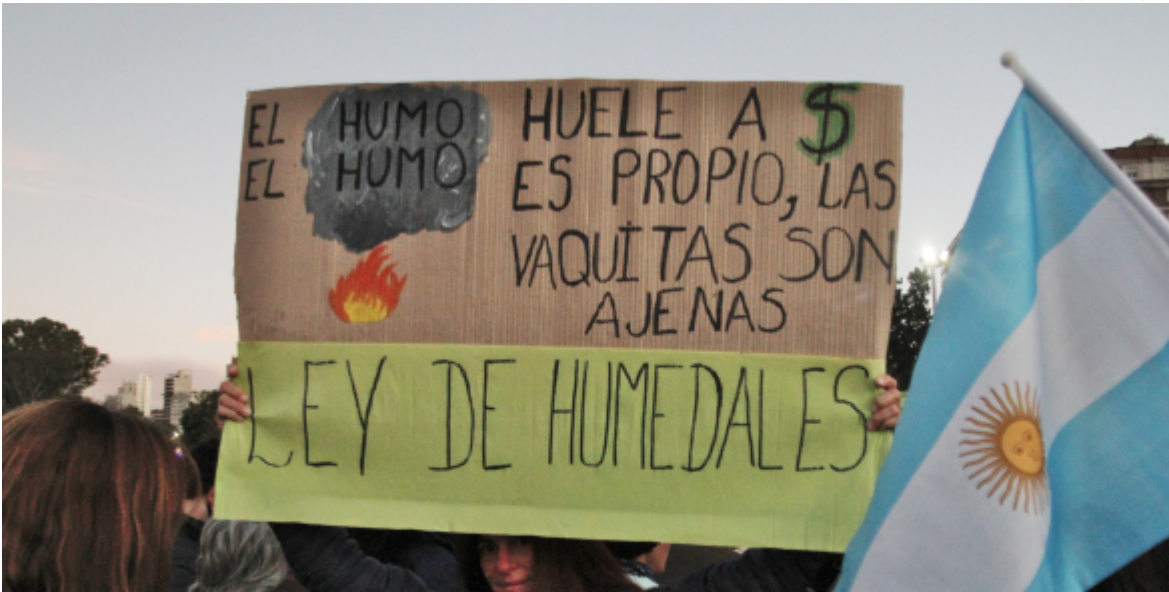 EL HUMO HUELE A $
EL HUMO ES PROPIO, LAS
VAQUITAS SON
AJENAS
LEY DE HUMEDALES